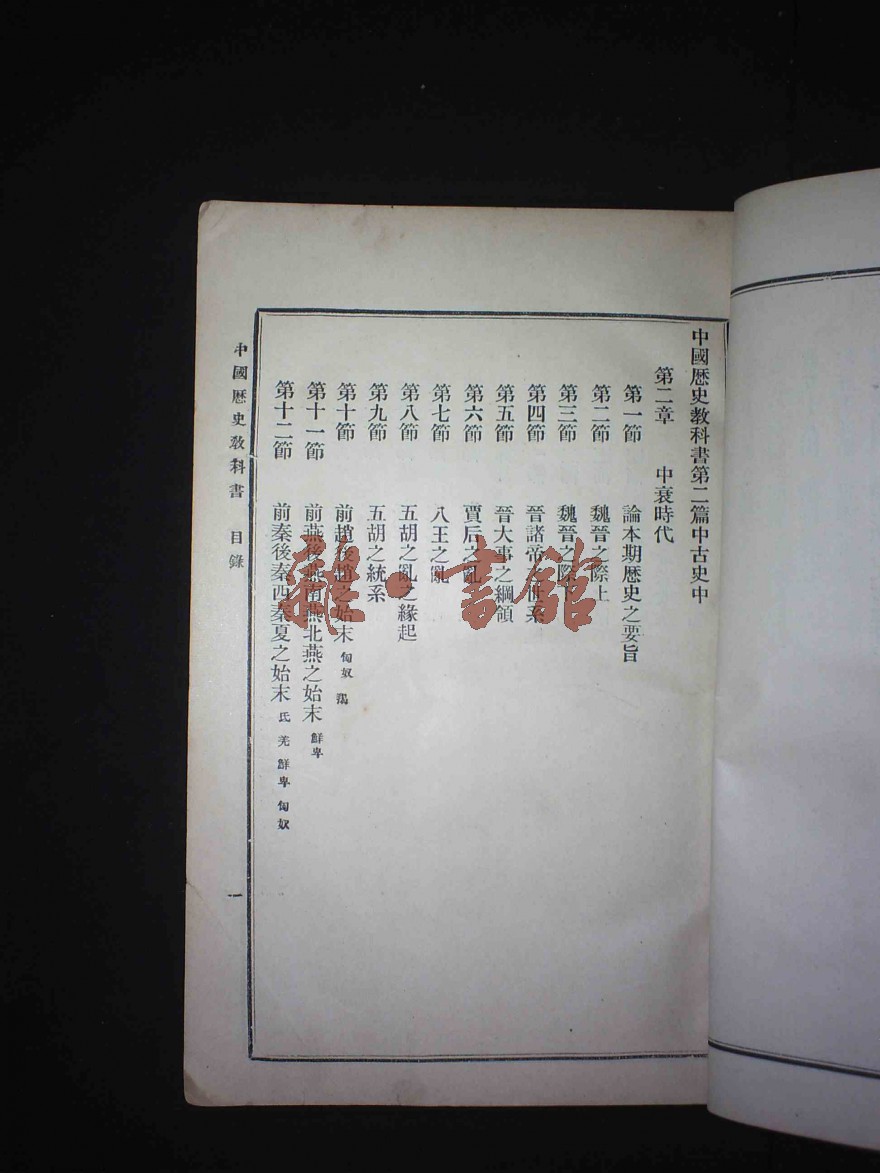 中國歷史教科書第二篇中古史中
第二章 中衰時代
第一節 論本期歷史之要旨
第二節 魏晉之際上
第三節 魏晉之際下
第四節 晉諸帝之世系
第五節 晉大事之綱領
第六節 賈后之亂
第七節 八王之亂
第八節 五胡之亂之緣起
第九節 五胡之統系
第十節 前趙後趙之始末 匈奴 羯
第十一節 前燕後燕南燕北燕之始末 鮮卑
第十二節 前秦後秦西秦夏之始末 氐 羌 鮮卑 匈奴
中國歷史教科書 目錄
一
龍·書館